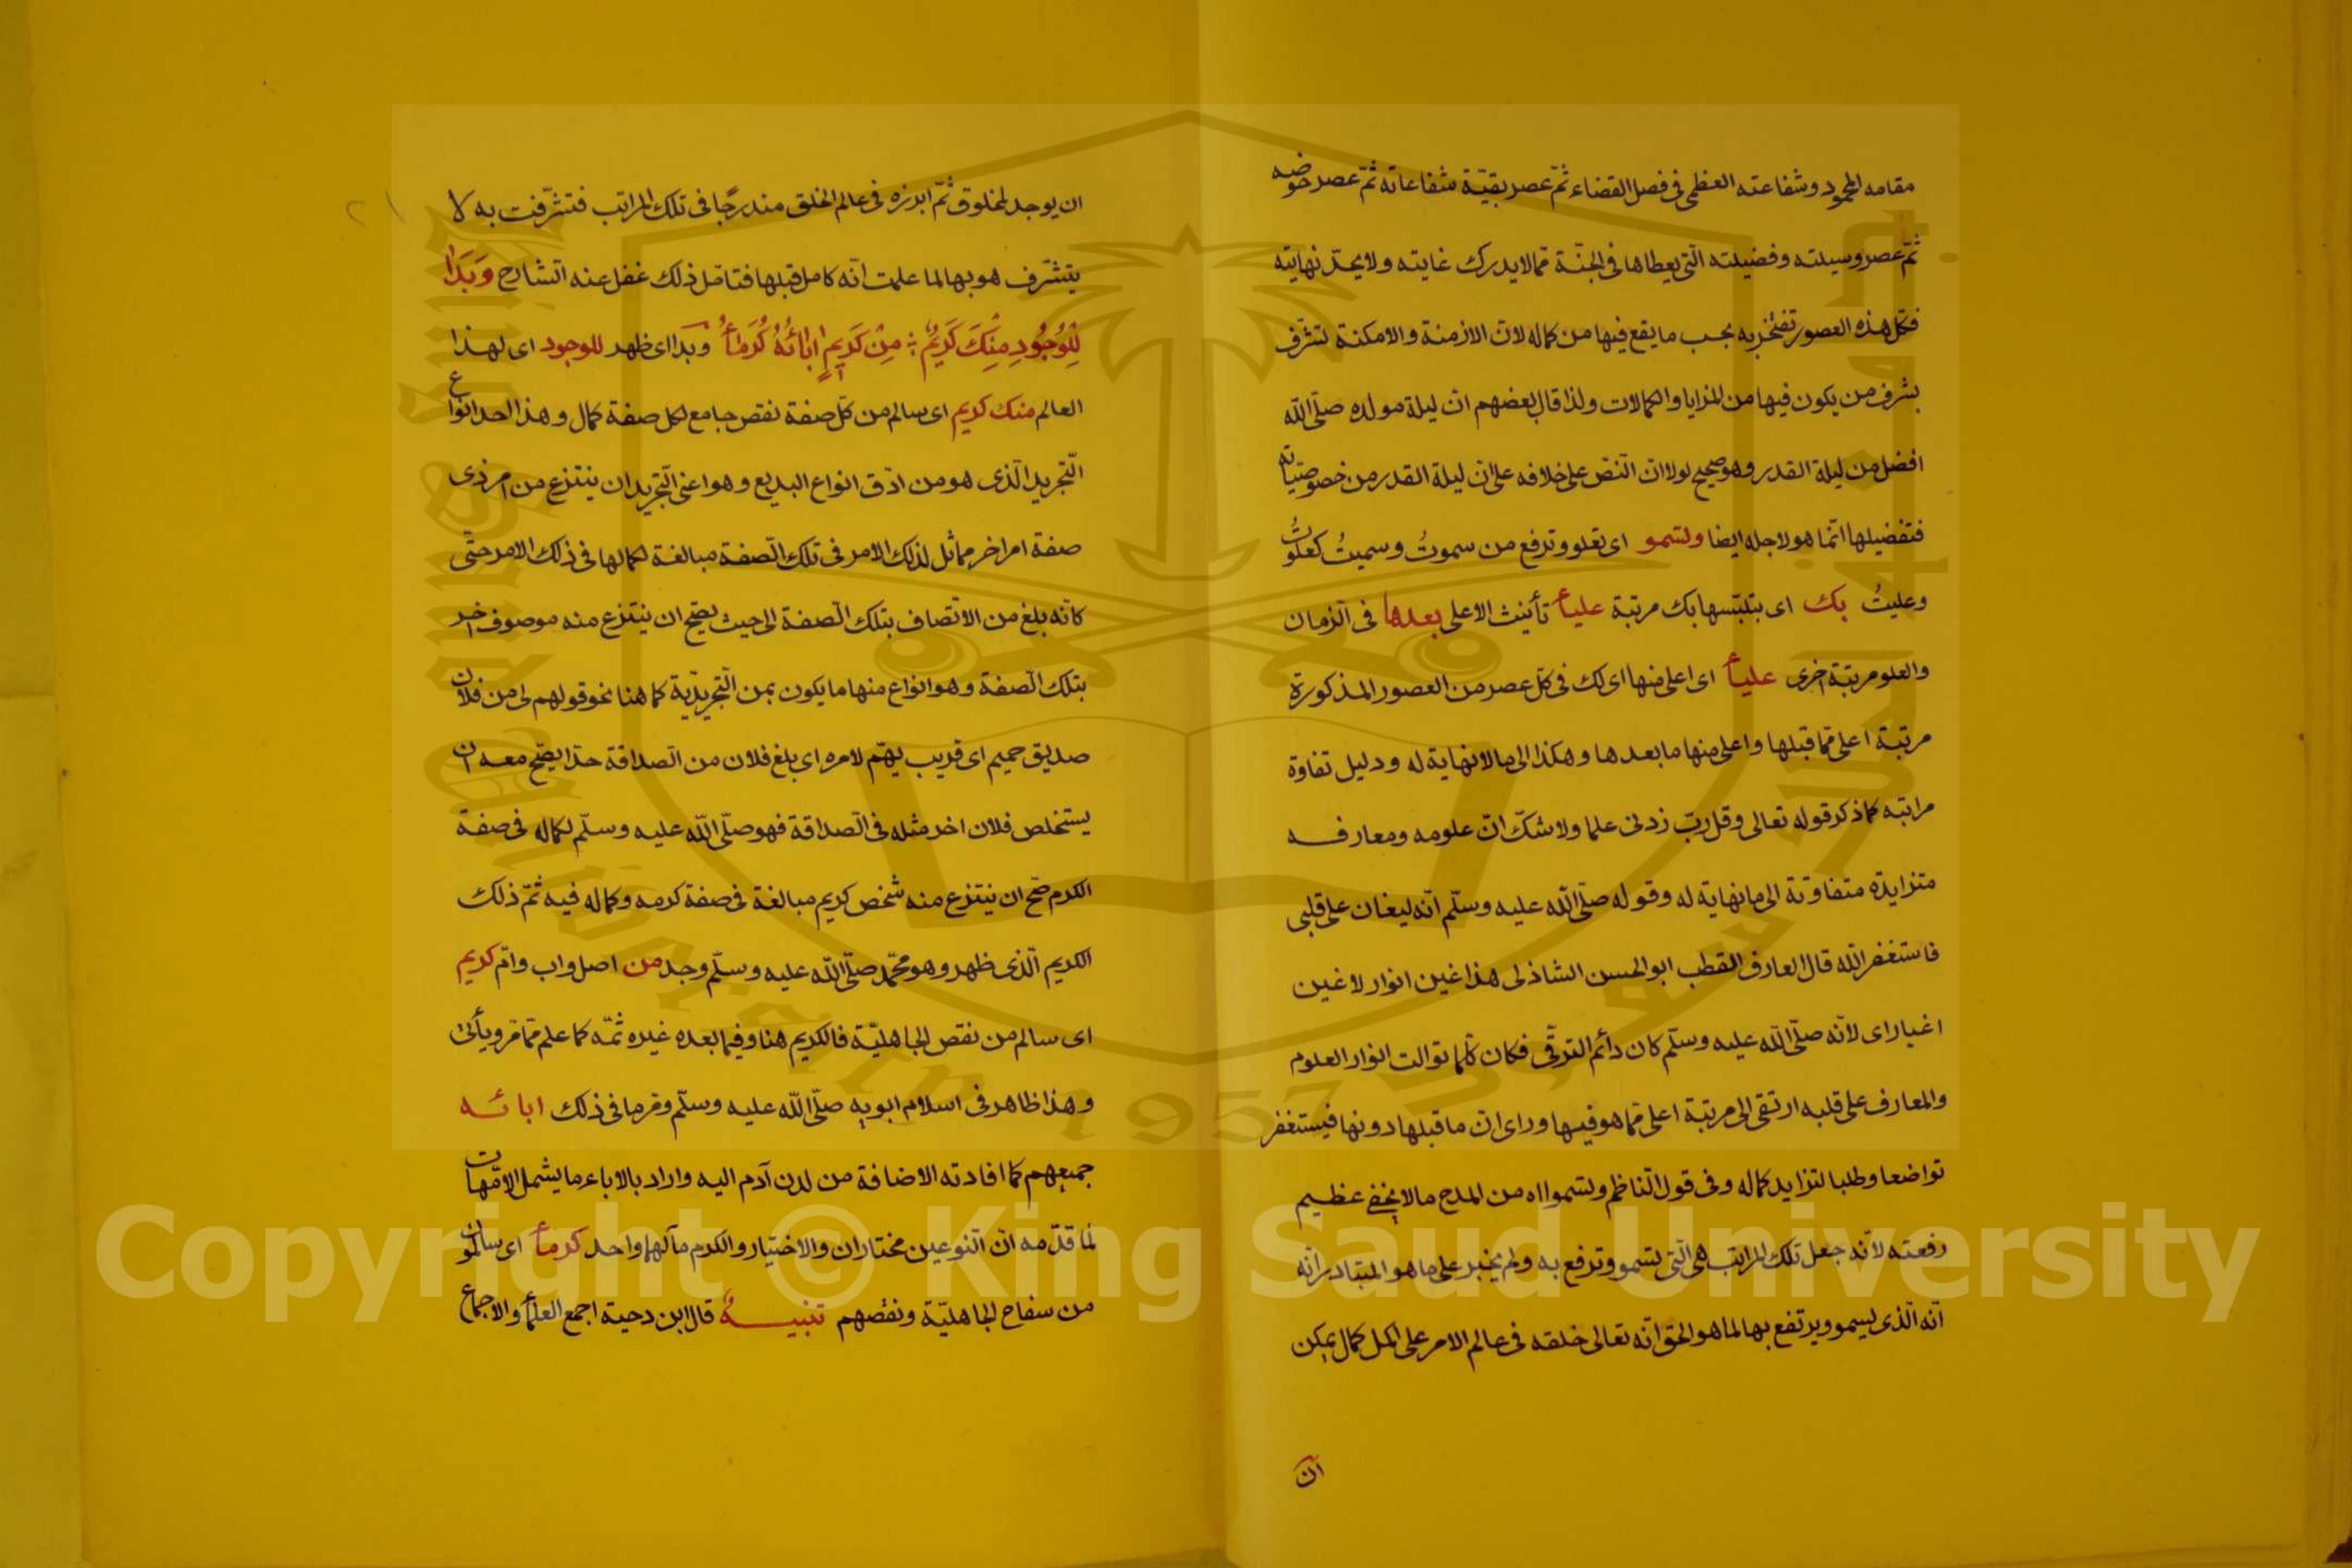 مقامه المحمود وشفاعته العظمى فى فصل القضاء ثمّ عصر بقيّة شفاعاته ثمّ عصر حوضه
ثمّ عصر وسيلته وفضيلته الّتى يعطاها فى الجنّة ممّا لا يدرك غايته ولا يحدّ نهايته
فكلّ هذه العصور تفتخر به بحسب ما يقع فيها من كماله لانّ الازمنة والامكنة تشرّف
بشرف من يكون فيها من المزايا والكمالات ولذا قال بعضهم انّ ليلة مولده صلّى اللّه
افضل من ليلة القدر وهو صحيح لولا انّ النّصّ على خلافه على انّ ليلة القدر من خصوصيّاته
فتفضيلها انّما هو لاجله ايضا وتسمو اى تعلو وترفع من سموتُ وسميتُ كعلوتُ
وعليتُ بك اى بتلبّسها بك مرتبة علياءُ تأنيث الاعلى بعدها فى الزمان
والعلو مرتبة اخرى علياءُ اى اعلى منها اى لك فى كلّ عصر من العصور المذكورة
مرتبة اعلى ممّا قبلها واعلى منها ما بعدها وهكذا الى ما لا نهاية له ودليل تفاوة
مراتبه كما ذكر قوله تعالى وقل ربّ زدنى علما ولا شكّ انّ علومه ومعارفه
متزايدة متفاوتة الى ما نهاية له وقوله صلّى اللّه عليه وسلّم انّه ليغان على قلبى
فاستغفر اللّه قال العارف القطب ابو الحسن الشاذلى هذا غين انوار لا غين
اغيار اى لانّه صلّى اللّه عليه وسلّم كان دائم الترقّى فكان كلّما توالت انوار العلوم
والمعارف على قلبه ارتقى الى مرتبة اعلى ممّا هو فيها وراى انّ ما قبلها دونها فيستغفر
تواضعا وطلبا لتزايد كماله وفى قول النّاظم وتسموا اه من المدح ما لا يخفى عظيم
رفعته لانّه جعل تلك المراتب هى الّتى تسمو وترفع به ولم يخبر على ما هو المتبادر انّه
انّه الّذى يسمو ويرتفع بها لما هو الحقّ انّه تعالى خلقه فى عالم الامر على اكمل كمال يمكن
ان
ان يوجد لمخلوق ثمّ ابرزه فى عالم الخلق مندرجًا فى تلك المراتب فتشرّفت به لا
يتشرّف هو بها لما علمت انّه كامل قبلها فتامّل ذلك غفل عنه الشّارح وَبَدَا
لِلْوُجُودِ مِنْكَ كَرِيمٌ مِنْ كَرِيمٍ اٰبَائُهُ كُرَمَاءُ وبدا اى ظهر للوجود اى لهذا
العالم منك كريم اى سالم من كلّ صفة نقص جامع لكل صفة كمال وهذا احد انواع
التّجريد الّذى هو من ادّق انواع البديع وهو اعنى التّجريد ان ينتزع من امر ذى
صفة امر اخر مماثل لذلك الامر فى تلك الصّفة مبالغة لكمالها فى ذلك الامر حتّى
كانّه بلغ من الاتّصاف بتلك الصّفة الى حيث يصحّ ان ينتزع منه موصوف اخر
بتلك الصّفة وهو انواع منها ما يكون بمن التّجريدّية كما هنا نحو قولهم لى من فلان
صديق حميم اى قريب يهتمّ لامره اى بلغ فلان من الصّداقة حدّا يصحّ معه ان
يستخلص فلان اخر مثله فى الصّداقة فهو صلّى اللّه عليه وسلّم لكماله فى صفة
الكرم صحّ ان ينتزع منه شخص كريم مبالغة فى صفة كرمه وكماله فيه ثمّ ذلك
الكريم الّذى ظهر وهو محمّد صلّى اللّه عليه وسلّم وجد من اصل واب وامّ كريم
اى سالم من نقص الجاهليّة فالكريم هنا وفيما بعده غيره ثمّه كما علم ممّا مرّ ويأتى
وهذا ظاهر فى اسلام ابويه صلّى اللّه عليه وسلّم ومرّ ما فى ذلك ابائه
جميعهم كما افادته الاضافة من لدن آدم اليه واراد بالاباء ما يشمل الامّهات
لما قدّمه انّ النّوعين مختاران والاختيار والكرم مآلهما واحد كرماءُ اى سالمون
من سفاح الجاهليّة ونقصهم تنبيـــه قال ابن دحية اجمع العلماء والاجماع